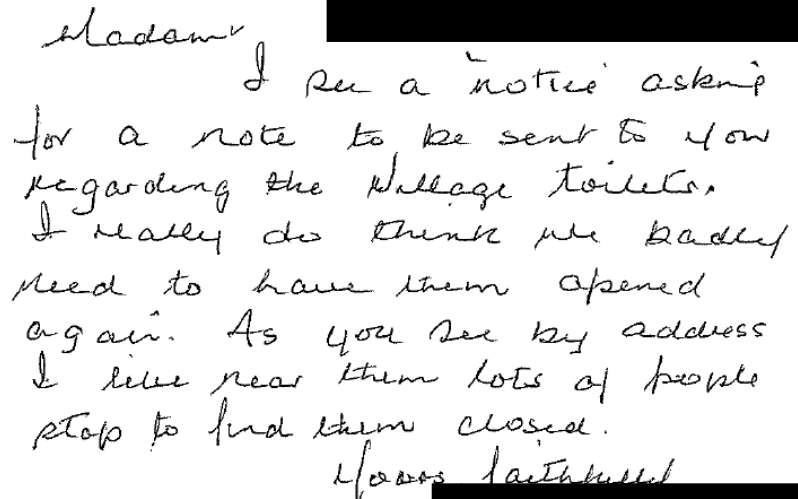 Madam
I see a notice asking
for a note to be sent to you
regarding the Village toilets.
I really do think we badly
need to have them opened
again. As you see by address
I live near them lots of people
stop to find them closed.
Yours faithfully